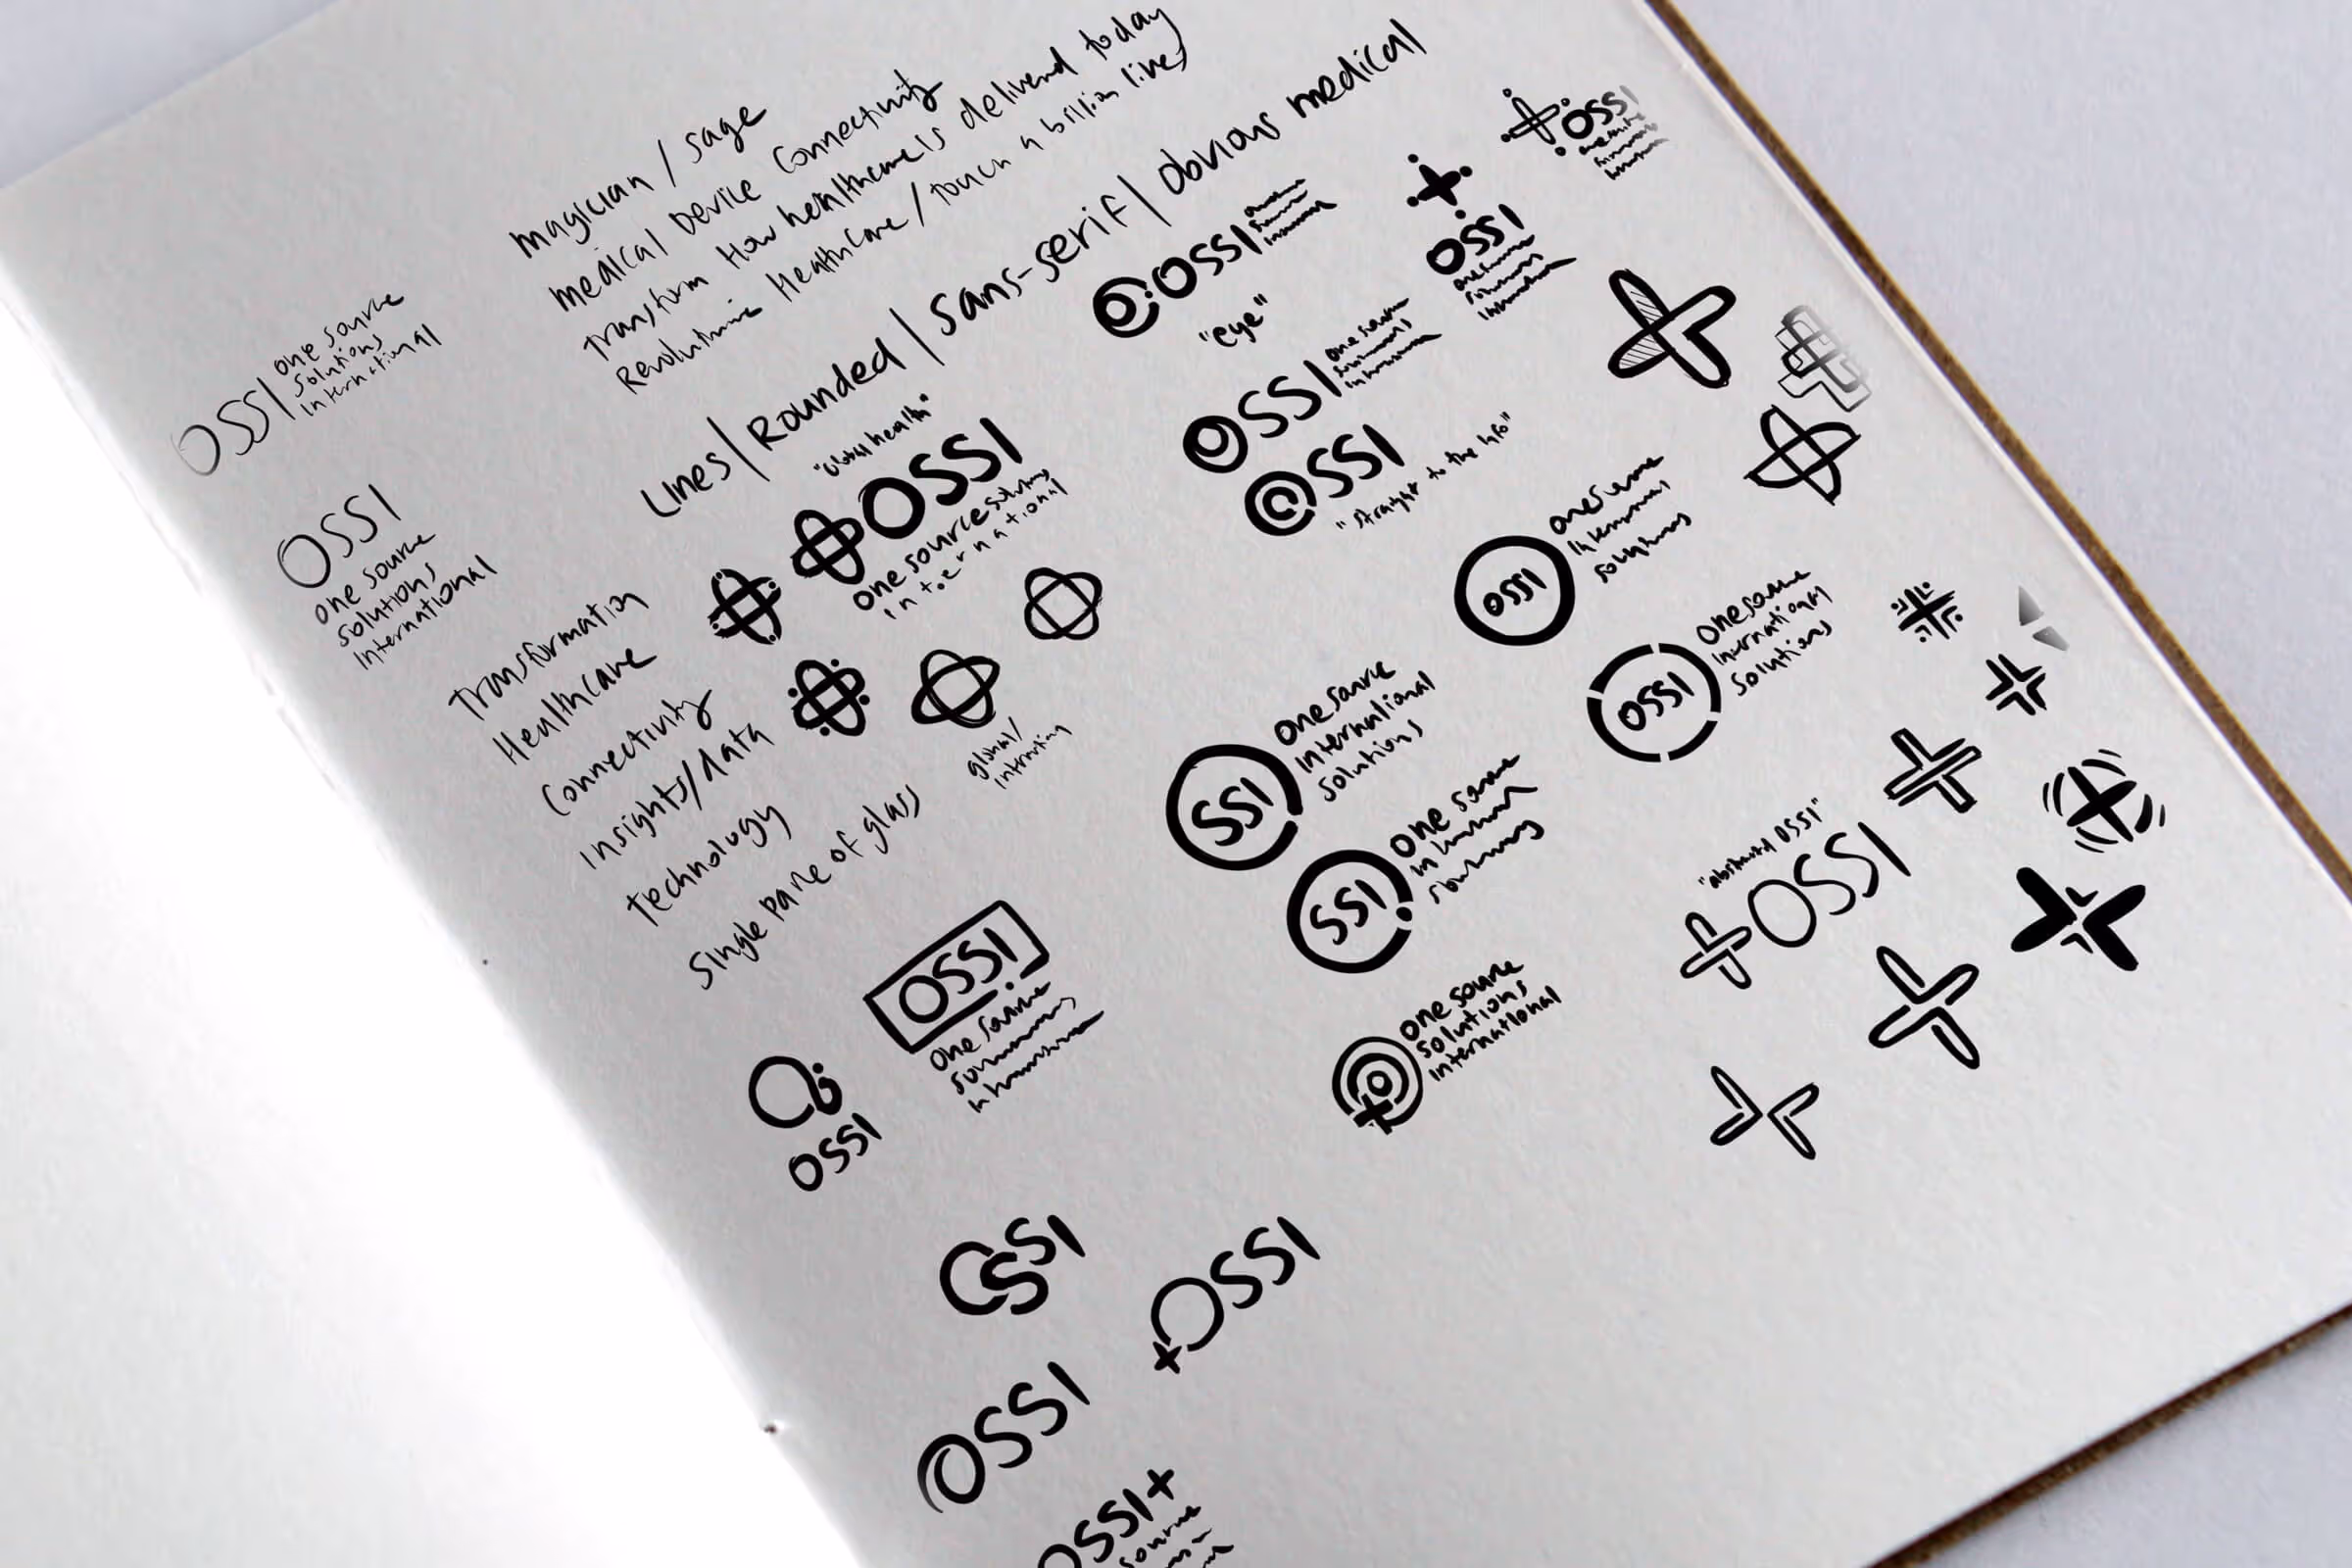 magician / sage
medical Device Connectivity
transform How healthcare is delivered today
Revolutionize HealthCare / touch a billion lives
Lines | Rounded | Sans-serif | obvious medical
OSSI
one source
solutions
international
OSSI
one source
solutions
International
Transformation
Healthcare
Connectivity
insights/data
technology
single pane of glass
"Global health"
OSSI
one source
international
global/
OSSI
"eye"
OSSI
OSSI
OSSI
one source
@SSI
"straight to the info"
OSSI
one source
international
solutions
OSSI
one source
international
solutions
SSI
one source
international
solutions
SSI
one source
one source
solutions
international
"abstract OSSI"
OSSI
OSSI
one source
OSSI
OSSI
OSSI
OSSI
OSSI+
source